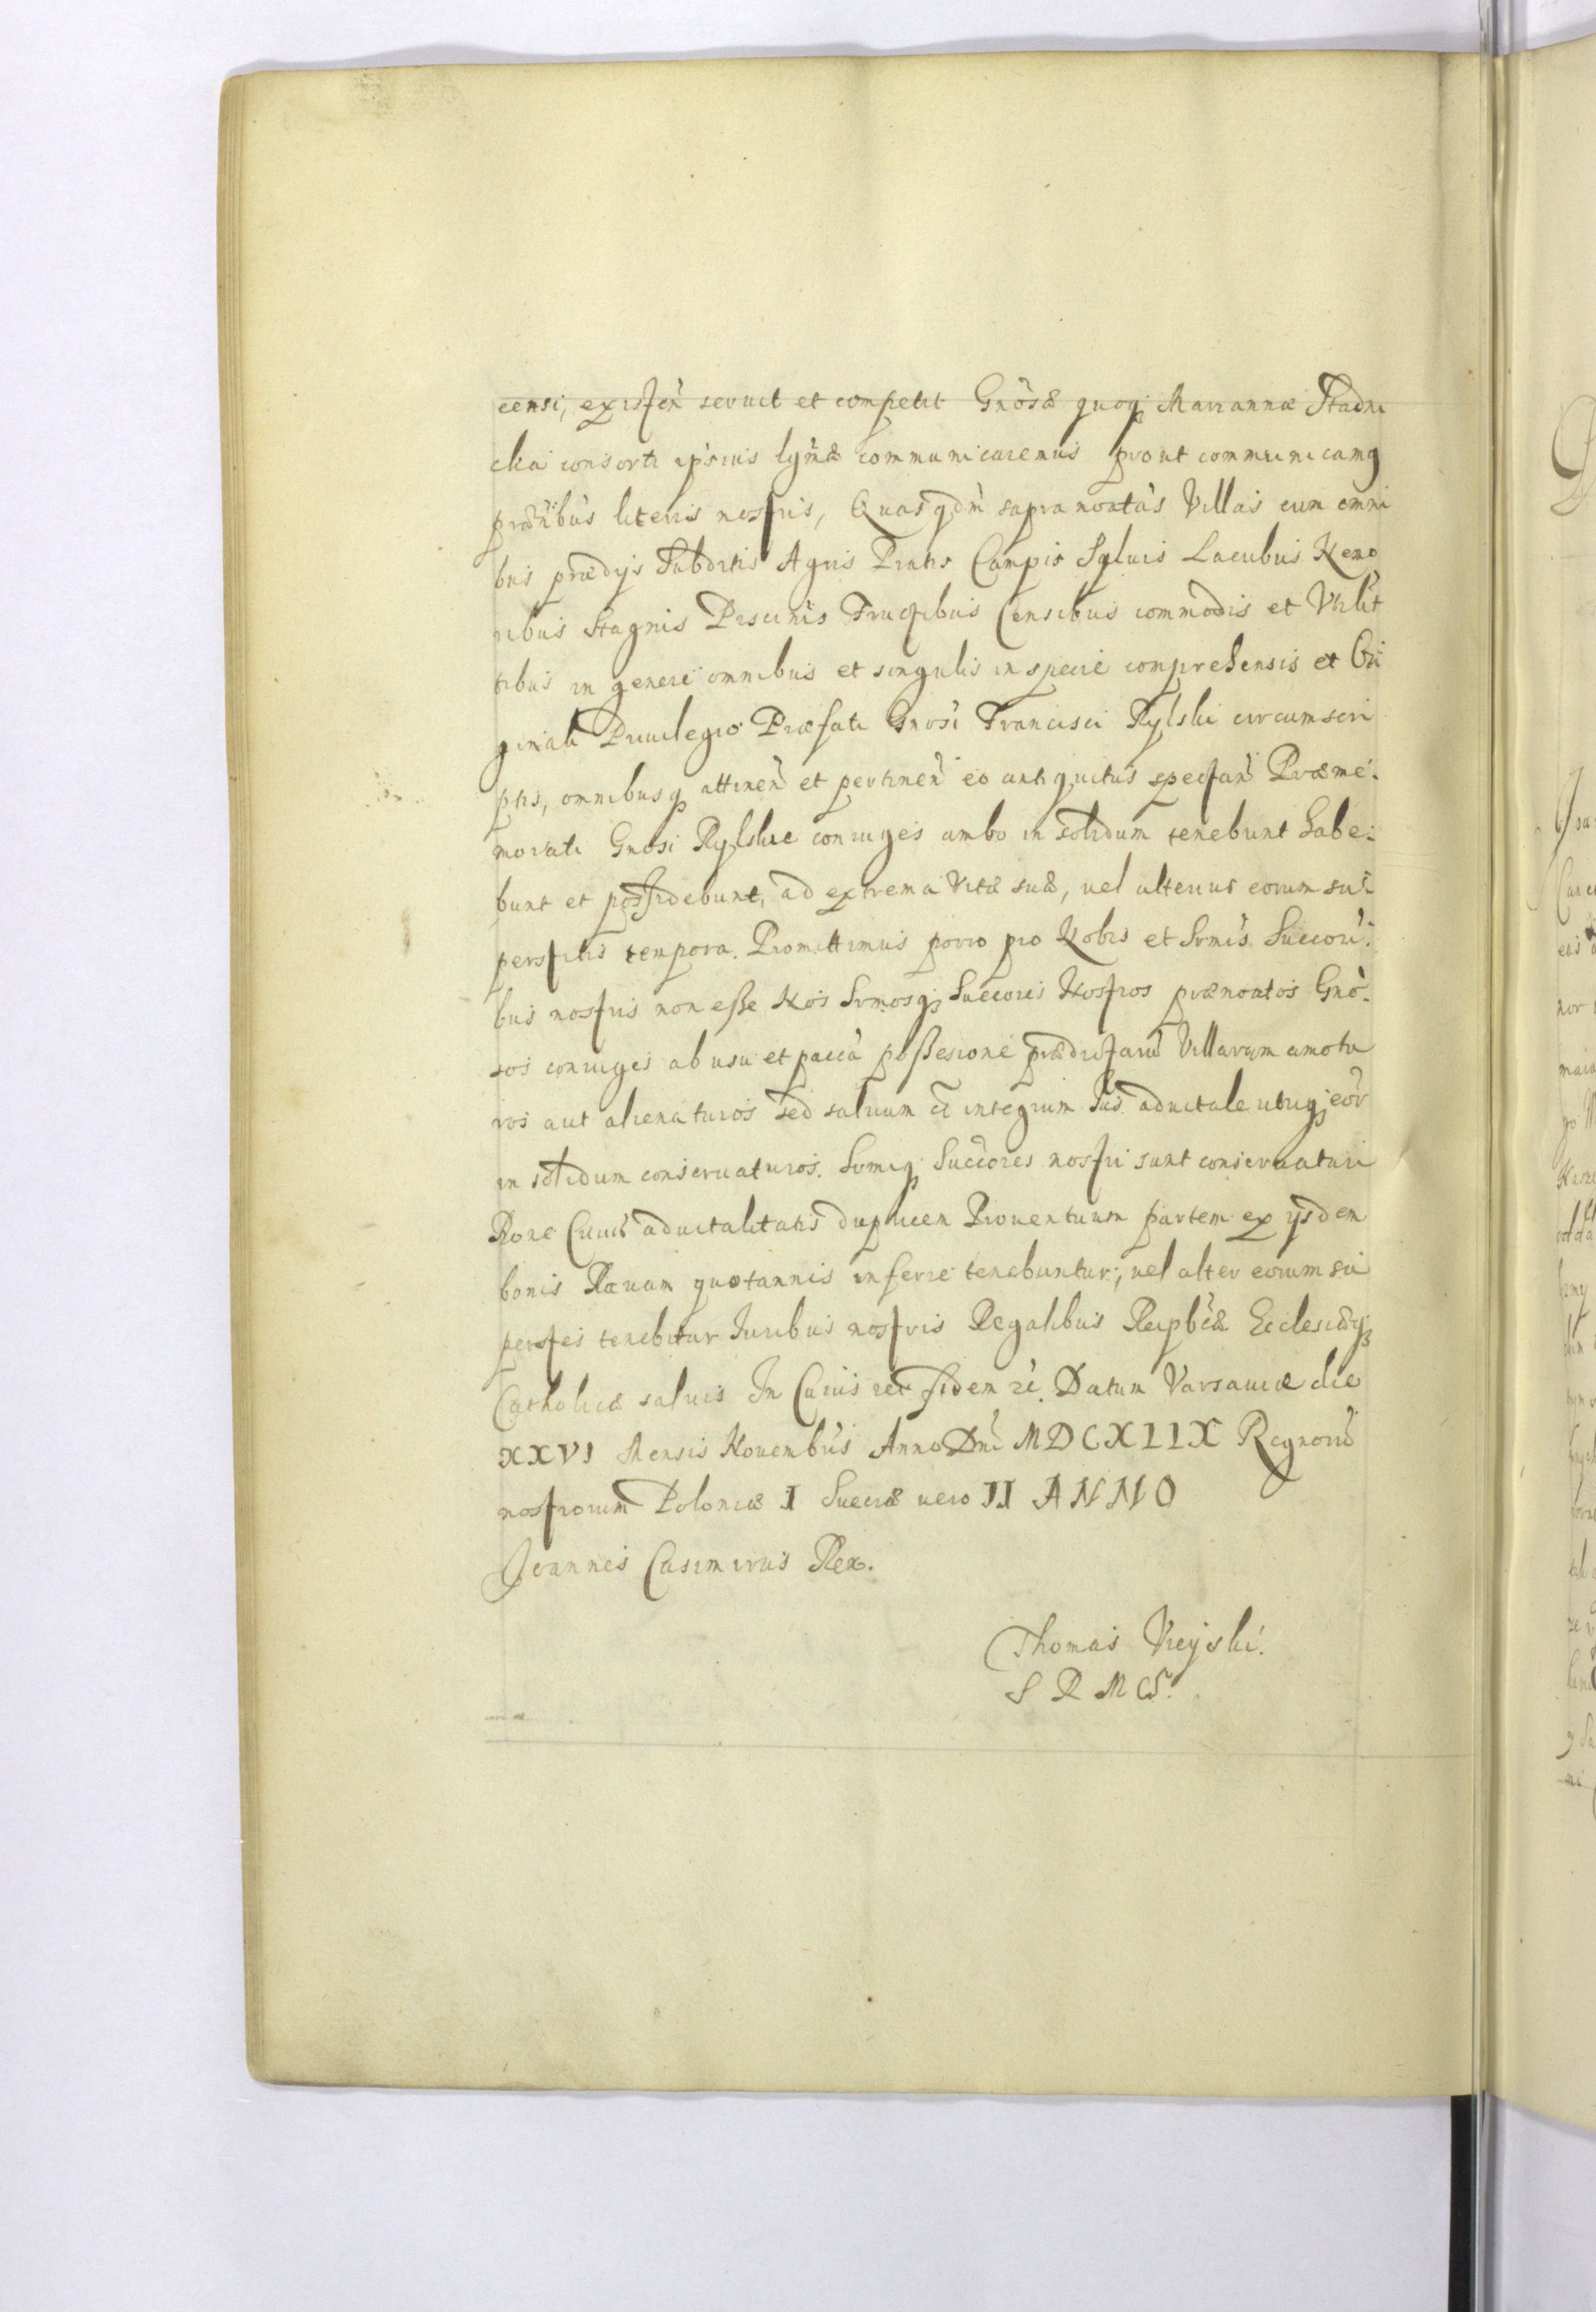 censi, existen̄ seruit et competit Gnosæ quoq; Mariannæ Stadni
ckà consorti ipsius lgmæ communicaremus prout communicamq
præntibus literis nostris, Quasqdm supranotatas Villas cum omni
bus prædijs Subditis Agris Pratis Campis Syluis Lacubus Nemo
ribus Stagnis Piscinis Fructibus Censibus commodis et Vtilit
tibus in genere omnibus et singulis in specie comprehensis et Ori
ginali Priuilegio Præfati Gnosi Francisci Rylski circumscri
ptis, omnibusq; attinen̄ et pertinen̄ eo antiquitus spectan̄ Præme-
morati Gnosi Rylskie coniuges ambo in solidum tenebunt habe-
bunt et possidebunt, ad extrema Vitæ suæ, uel alterius eorum su-
perstitis tempora. Promittimus porro pro Nobis et Srmis Succori-
bus nostris non esse Nos Srmosq; Succores Nostros prænotatos Gno-
sos coniuges ab usu et pacca possesione prædictarū Villarum amotu
ros aut alienaturos sed saluum et integrum Ius aduitale utriq; eor
in solidum conseruaturos. Srmiq; Succores nostri sunt conseruaturi
Rone Cuius aduitalitatis duplicem Prouentuum partem ex ijsdem
bonis Rauam quotannis inferre tenebuntur; uel alter eorum su
perstes tenebitur Iuribus nostris Regalibus Reipbcæ Ecclesiæq;
Catholicæ saluis In Cuius rei fidem rc. Datum Varsauiæ die
XXVI Mensis Nouembris Anno Dni MDCXLIIX Regnorū
nostrorum Poloniæ I Sueciæ uero II ANNO
Joannes Casimirus Rex.
Thomas Vieyski.
S R M CS.